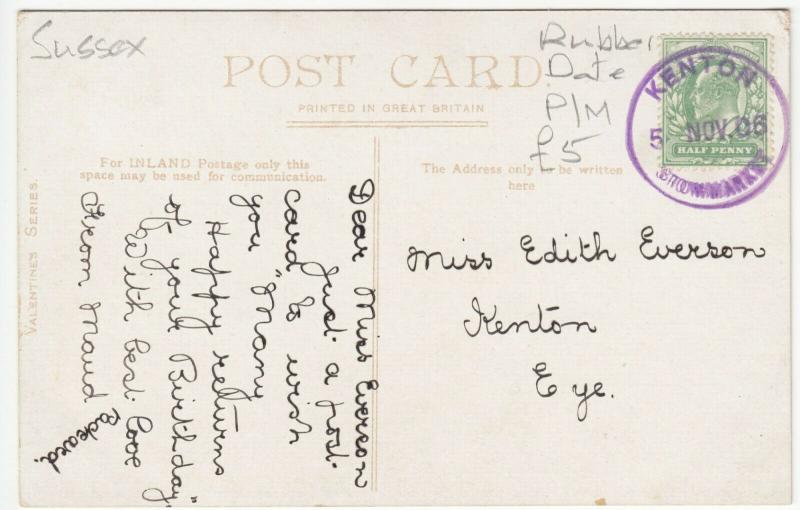 Sussex
Rubber
Date
P/M
£5
POST CARD
PRINTED IN GREAT BRITAIN
KENTON
5 NOV. 06
STOWMARKET
HALF PENNY
For INLAND Postage only this
space may be used for communication.
The Address only to be written
here
VALENTINE'S SERIES.
Dear Miss Everson
Just a post
card to wish
you "Many
Happy returns
of your Birthday"
With best love
From Maud
Packard.
Miss Edith Everson
Kenton
Eye.